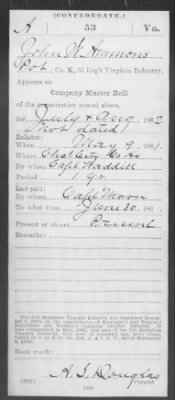 (CONFEDERATE.)
A 53 Va.
John W. Ammons
Pvt, Co. K, 53 Reg't Virginia Infantry.
Appears on
Company Muster Roll
of the organization named above,
for July & Aug, 1862
Not dated
Enlisted:
When May 9, 1861.
Where Chas City Co. Ho
By whom Capt Waddill
Period 1 yr
Last paid:
By whom Capt Moon
To what time June 30, 186
Present or absent Present
Remarks:
Book mark:
A. S. Douglas
Copyist.